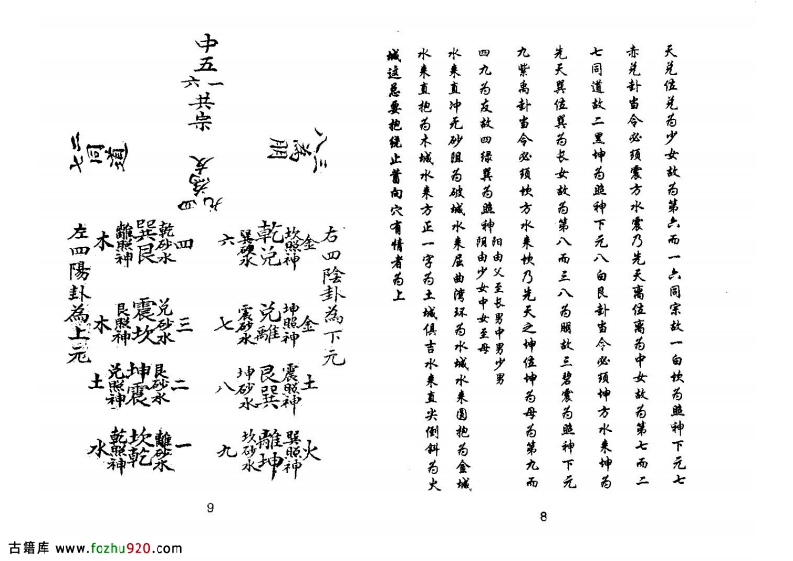 天兑位兑为少女故为第六而一六同宗故一白坎为照神下元七
赤兑卦当令必须震方水震乃先天离位离为中女故为第七而二
七同道故二黑坤为照神下元八白艮卦当令必须坤方水来坤为
先天巽位巽为长女故为第八而三八为朋故三碧震为照神下元
九紫离卦当令必须坎方水来坎乃先天之坤位坤为母为第九而
四九为友故四绿巽为照神
阳由父至长男中男少男
阴由少女中女至母
水来直冲无砂阻为破城水来屈曲湾环为水城水来圆抱为金城
水来直抱为木城水来方正一字为土城俱吉水来直尖倒斜为火
城这忌要抱绕止蓄向穴有情者为上
8
中五
一六共宗
二七同道
三八為朋
四九為友
右四陰卦為下元
金
坎照神
乾兑
巽砂水
六
金
坤照神
兑離
震砂水
七
土
震照神
艮巽
坤砂水
八
火
巽照神
離坤
坎砂水
九
四
乾砂水
巽艮
離照神
木
三
兑砂水
震坎
艮照神
木
二
艮砂水
坤震
兑照神
土
一
離砂水
坎乾
乾照神
水
左四陽卦為上元
9
古籍库 www.fozhu920.com